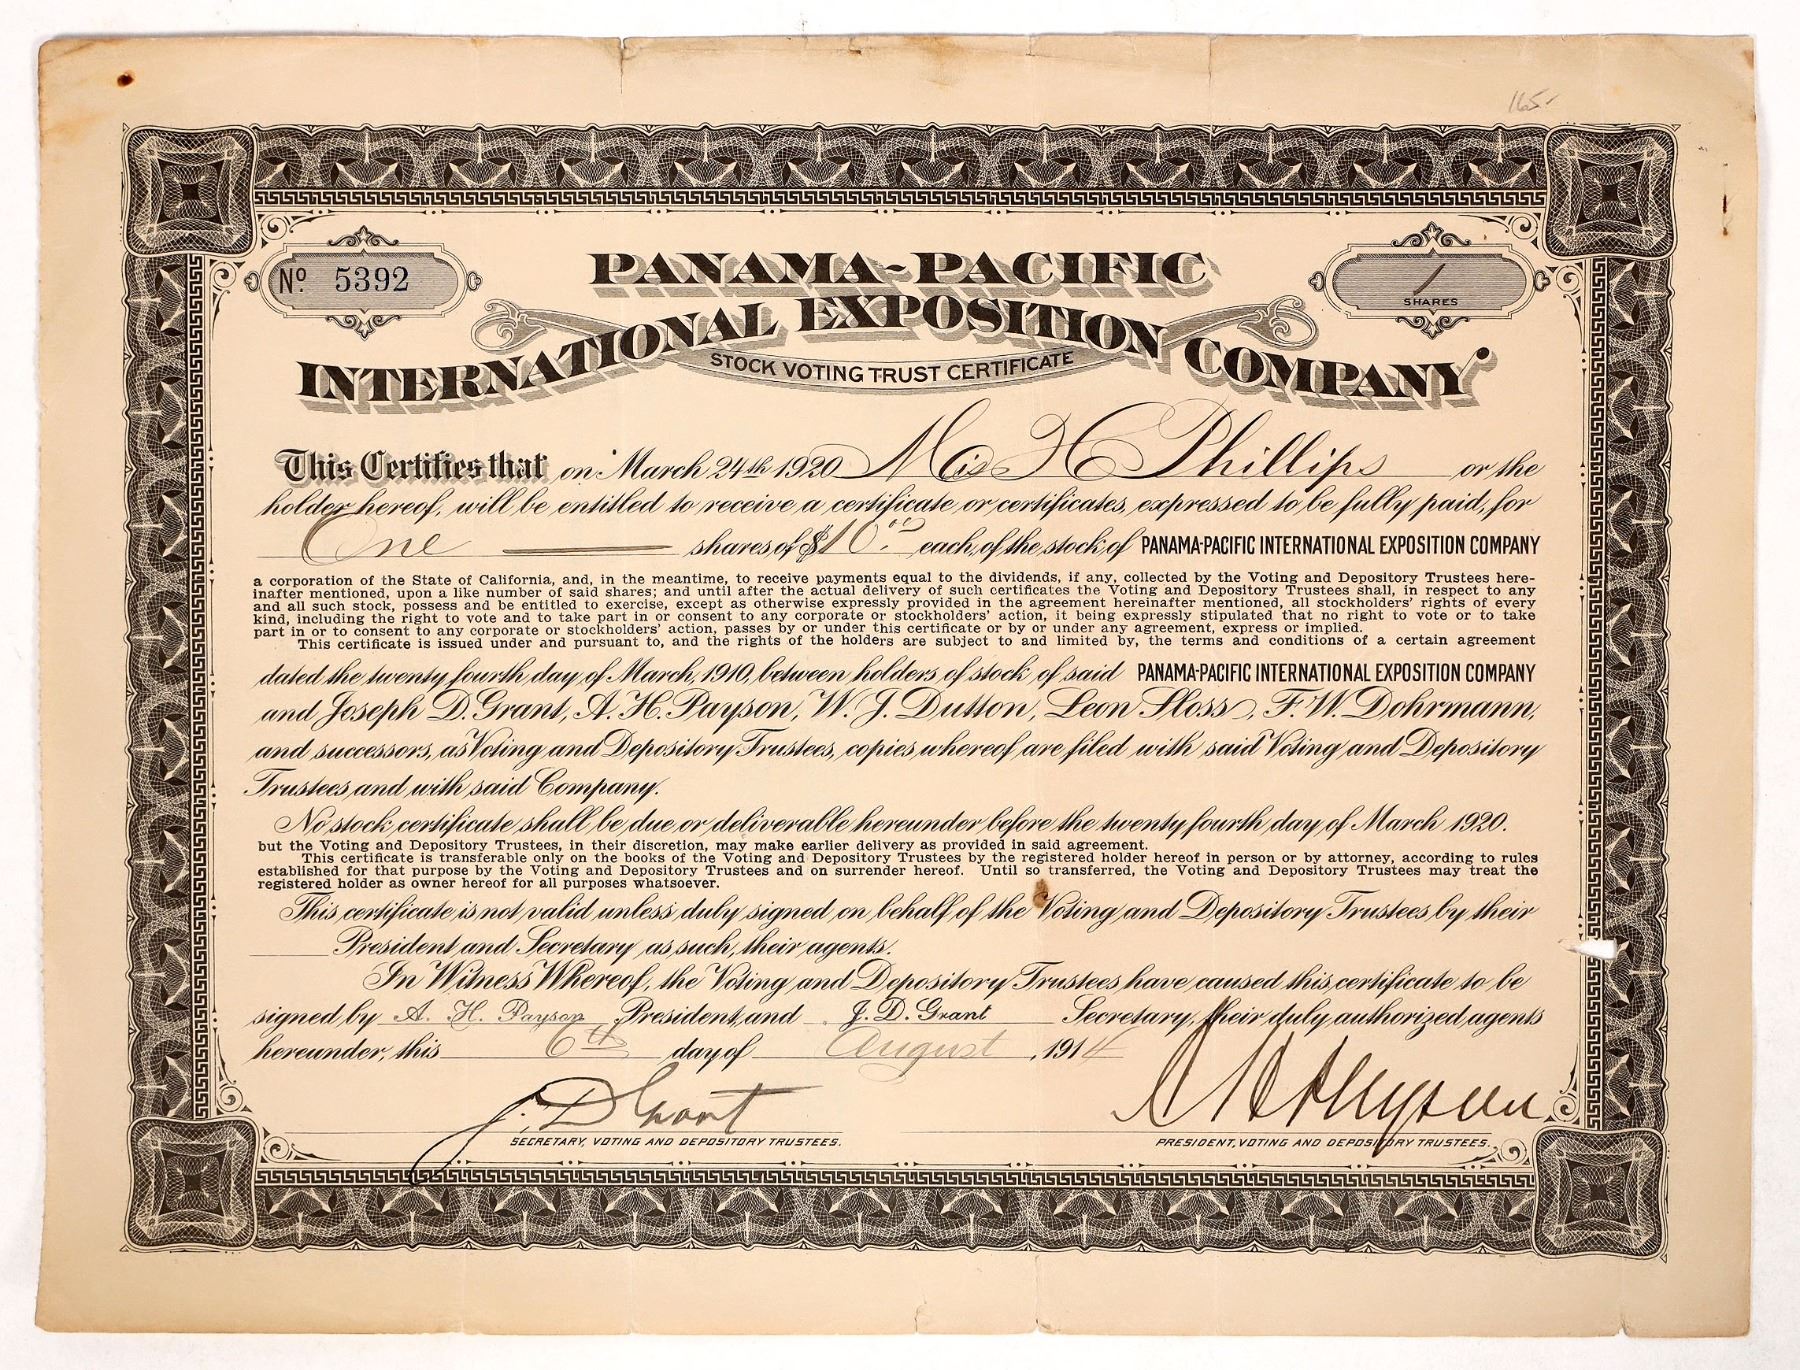 165-
Nº 5392
1
SHARES
PANAMA-PACIFIC
INTERNATIONAL EXPOSITION COMPANY
STOCK VOTING TRUST CERTIFICATE
This Certifies that on March 24th 1920 Miss H Phillips or the
holder hereof, will be entitled to receive a certificate or certificates, expressed to be fully paid, for
One shares of $10.00 each, of the stock, of PANAMA-PACIFIC INTERNATIONAL EXPOSITION COMPANY
a corporation of the State of California, and, in the meantime, to receive payments equal to the dividends, if any, collected by the Voting and Depository Trustees here-
inafter mentioned, upon a like number of said shares; and until after the actual delivery of such certificates the Voting and Depository Trustees shall, in respect to any
and all such stock, possess and be entitled to exercise, except as otherwise expressly provided in the agreement hereinafter mentioned, all stockholders' rights of every
kind, including the right to vote and to take part in or consent to any corporate or stockholders' action, it being expressly stipulated that no right to vote or to take
part in or to consent to any corporate or stockholders' action, passes by or under this certificate or by or under any agreement, express or implied.
This certificate is issued under and pursuant to, and the rights of the holders are subject to and limited by, the terms and conditions of a certain agreement
dated the twenty fourth day of March, 1910, between holders of stock of said PANAMA-PACIFIC INTERNATIONAL EXPOSITION COMPANY
and Joseph D. Grant, A. H. Payson, W. J. Dutton, Leon Sloss, F. W. Dohrmann,
and successors, as Voting and Depository Trustees, copies whereof are filed with said Voting and Depository
Trustees and with said Company.
No stock certificate shall be due or deliverable hereunder before the twenty fourth day of March 1920.
but the Voting and Depository Trustees, in their discretion, may make earlier delivery as provided in said agreement.
This certificate is transferable only on the books of the Voting and Depository Trustees by the registered holder hereof in person or by attorney, according to rules
established for that purpose by the Voting and Depository Trustees and on surrender hereof. Until so transferred, the Voting and Depository Trustees may treat the
registered holder as owner hereof for all purposes whatsoever.
This certificate is not valid unless duly signed on behalf of the Voting and Depository Trustees by their
President and Secretary as such, their agents.
In Witness Whereof, the Voting and Depository Trustees have caused this certificate to be
signed by A. H. Payson President, and J. D. Grant Secretary, their duly authorized agents
hereunder, this 6th day of August, 1914
J. D. Grant
A H Payson
SECRETARY, VOTING AND DEPOSITORY TRUSTEES.
PRESIDENT, VOTING AND DEPOSITORY TRUSTEES.